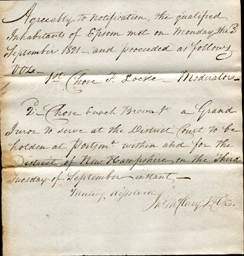 Agreeably to Notification, the qualified
Inhabitants of Epsom met on Monday the 3d
September 1821 - and proceeded as follows
Viz.
1st Chose S. Locke - Moderator
2d Chose Enoch Brown Jr a Grand
Juror to serve at the District Court to be
holden at Portsmo within and for the
District of New Hampshire on the Third
Tuesday of September instant -
Meeting dissolved
McClary